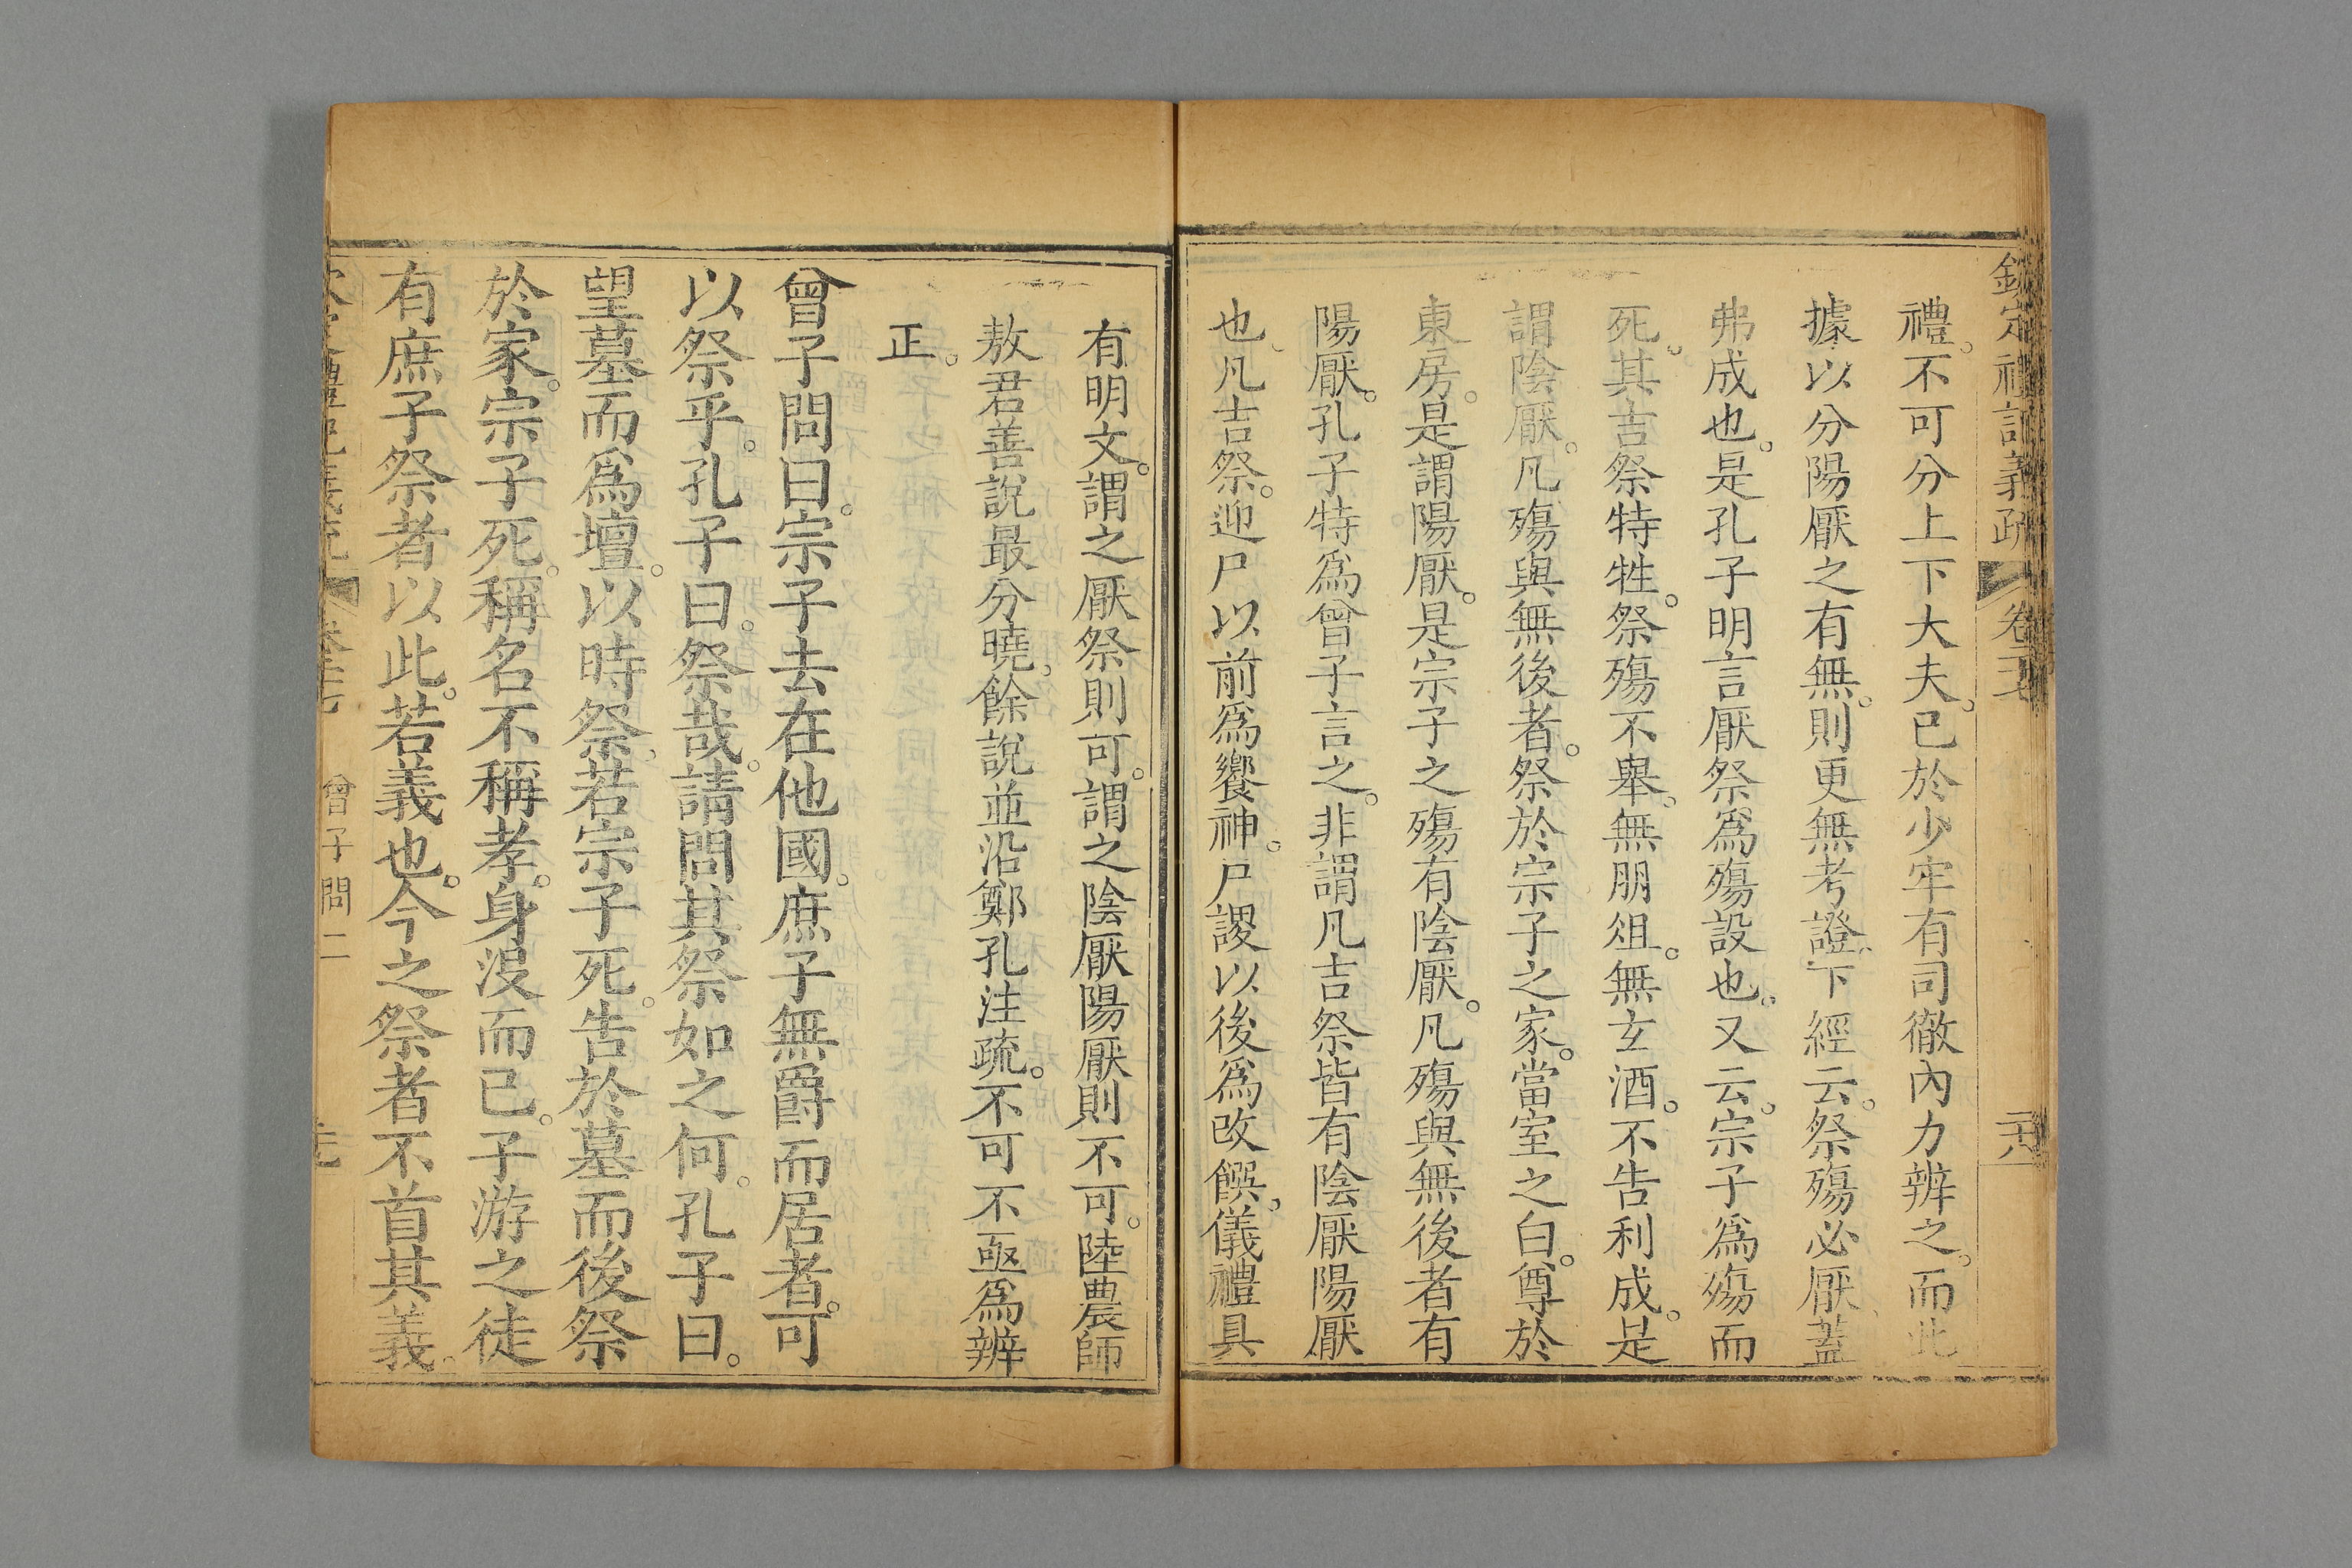 欽定禮記義疏 卷二十七 二十八
禮。不可分上下大夫。已於少牢有司徹內力辨之。而此
據以分陽厭之有無。則更無考證。下經云。祭殤必厭、蓋
弗成也。是孔子明言厭祭爲殤設也。又云。宗子爲殤而
死。其吉祭特牲。祭殤不舉。無朋俎。無玄酒。不告利成。是
謂陰厭。凡殤與無後者。祭於宗子之家。當室之白。尊於
東房。是謂陽厭。是宗子之殤有陰厭。凡殤與無後者有
陽厭。孔子特爲曾子言之。非謂凡吉祭皆有陰厭陽厭
也、凡吉祭。迎尸以前爲饗神。尸謖以後爲改饌、儀禮具
有明文。謂之厭祭則可。謂之陰厭陽厭則不可。陸農師
敖君善說最分曉、餘說並沿鄭孔注疏。不可不亟爲辨
正。
曾子問曰。宗子去在他國。庶子無爵而居者。可
以祭乎。孔子曰。祭哉。請問其祭如之何。孔子曰。
望墓而爲壇。以時祭、若宗子死。告於墓而後祭
於家。宗子死。稱名不稱孝。身沒而已。子游之徒
有庶子祭者以此。若義也。今之祭者不首其義。
禮記義疏 卷二十七 曾子問二